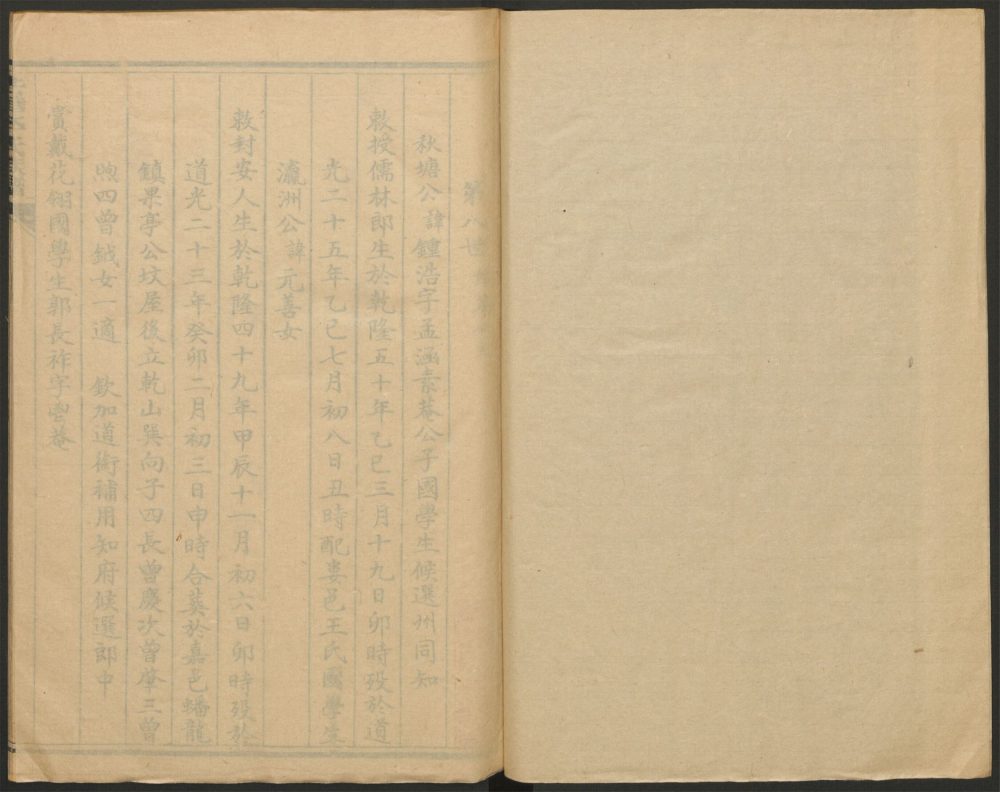 第八世
秋塘公諱鍾浩字孟涵素菴公子國學生候選州同知
敕授儒林郎生於乾隆五十年乙巳三月十九日卯時歿於道
光二十五年乙巳七月初八日丑時配婁邑王氏國學生
瀛洲公諱元善女
敕封安人生於乾隆四十九年甲辰十一月初六日卯時歿於
道光二十三年癸卯二月初三日申時合葬於嘉邑蟠龍
鎮果亭公坟屋後立乾山巽向子四長曾慶次曾肇三曾
煦四曾鉞女一適 欽加道銜補用知府候選郎中
賞戴花翎國學生郭長祚字豐菴